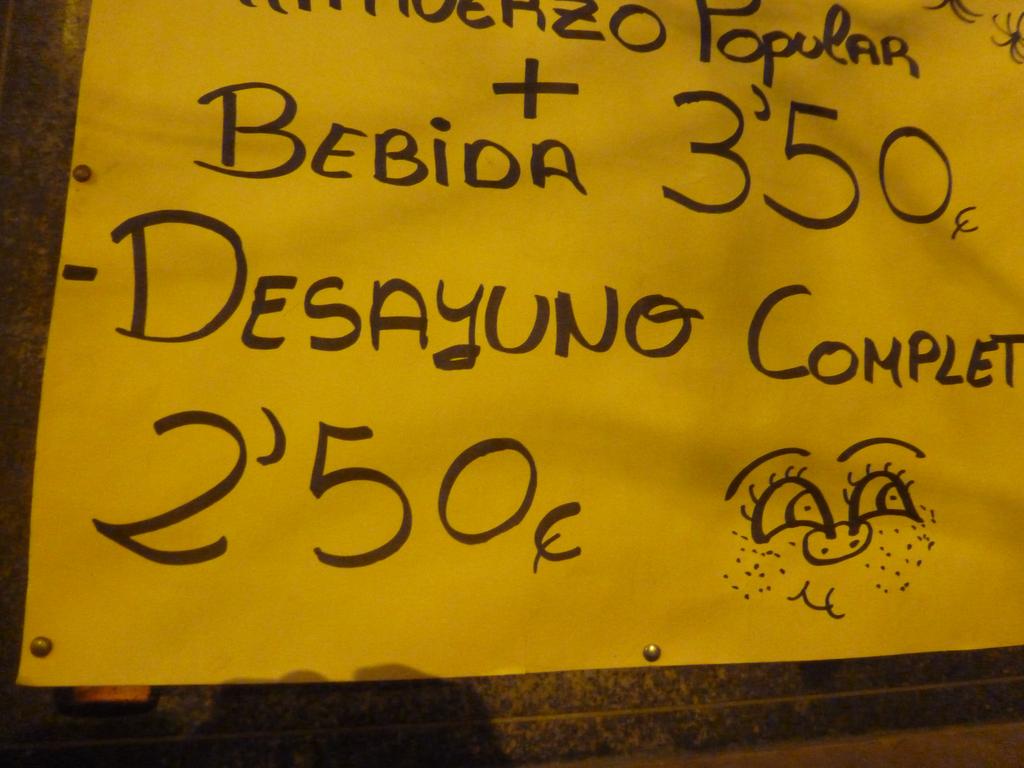 Almuerzo Popular
+
Bebida 3'50€
- Desayuno Complet
2'50€